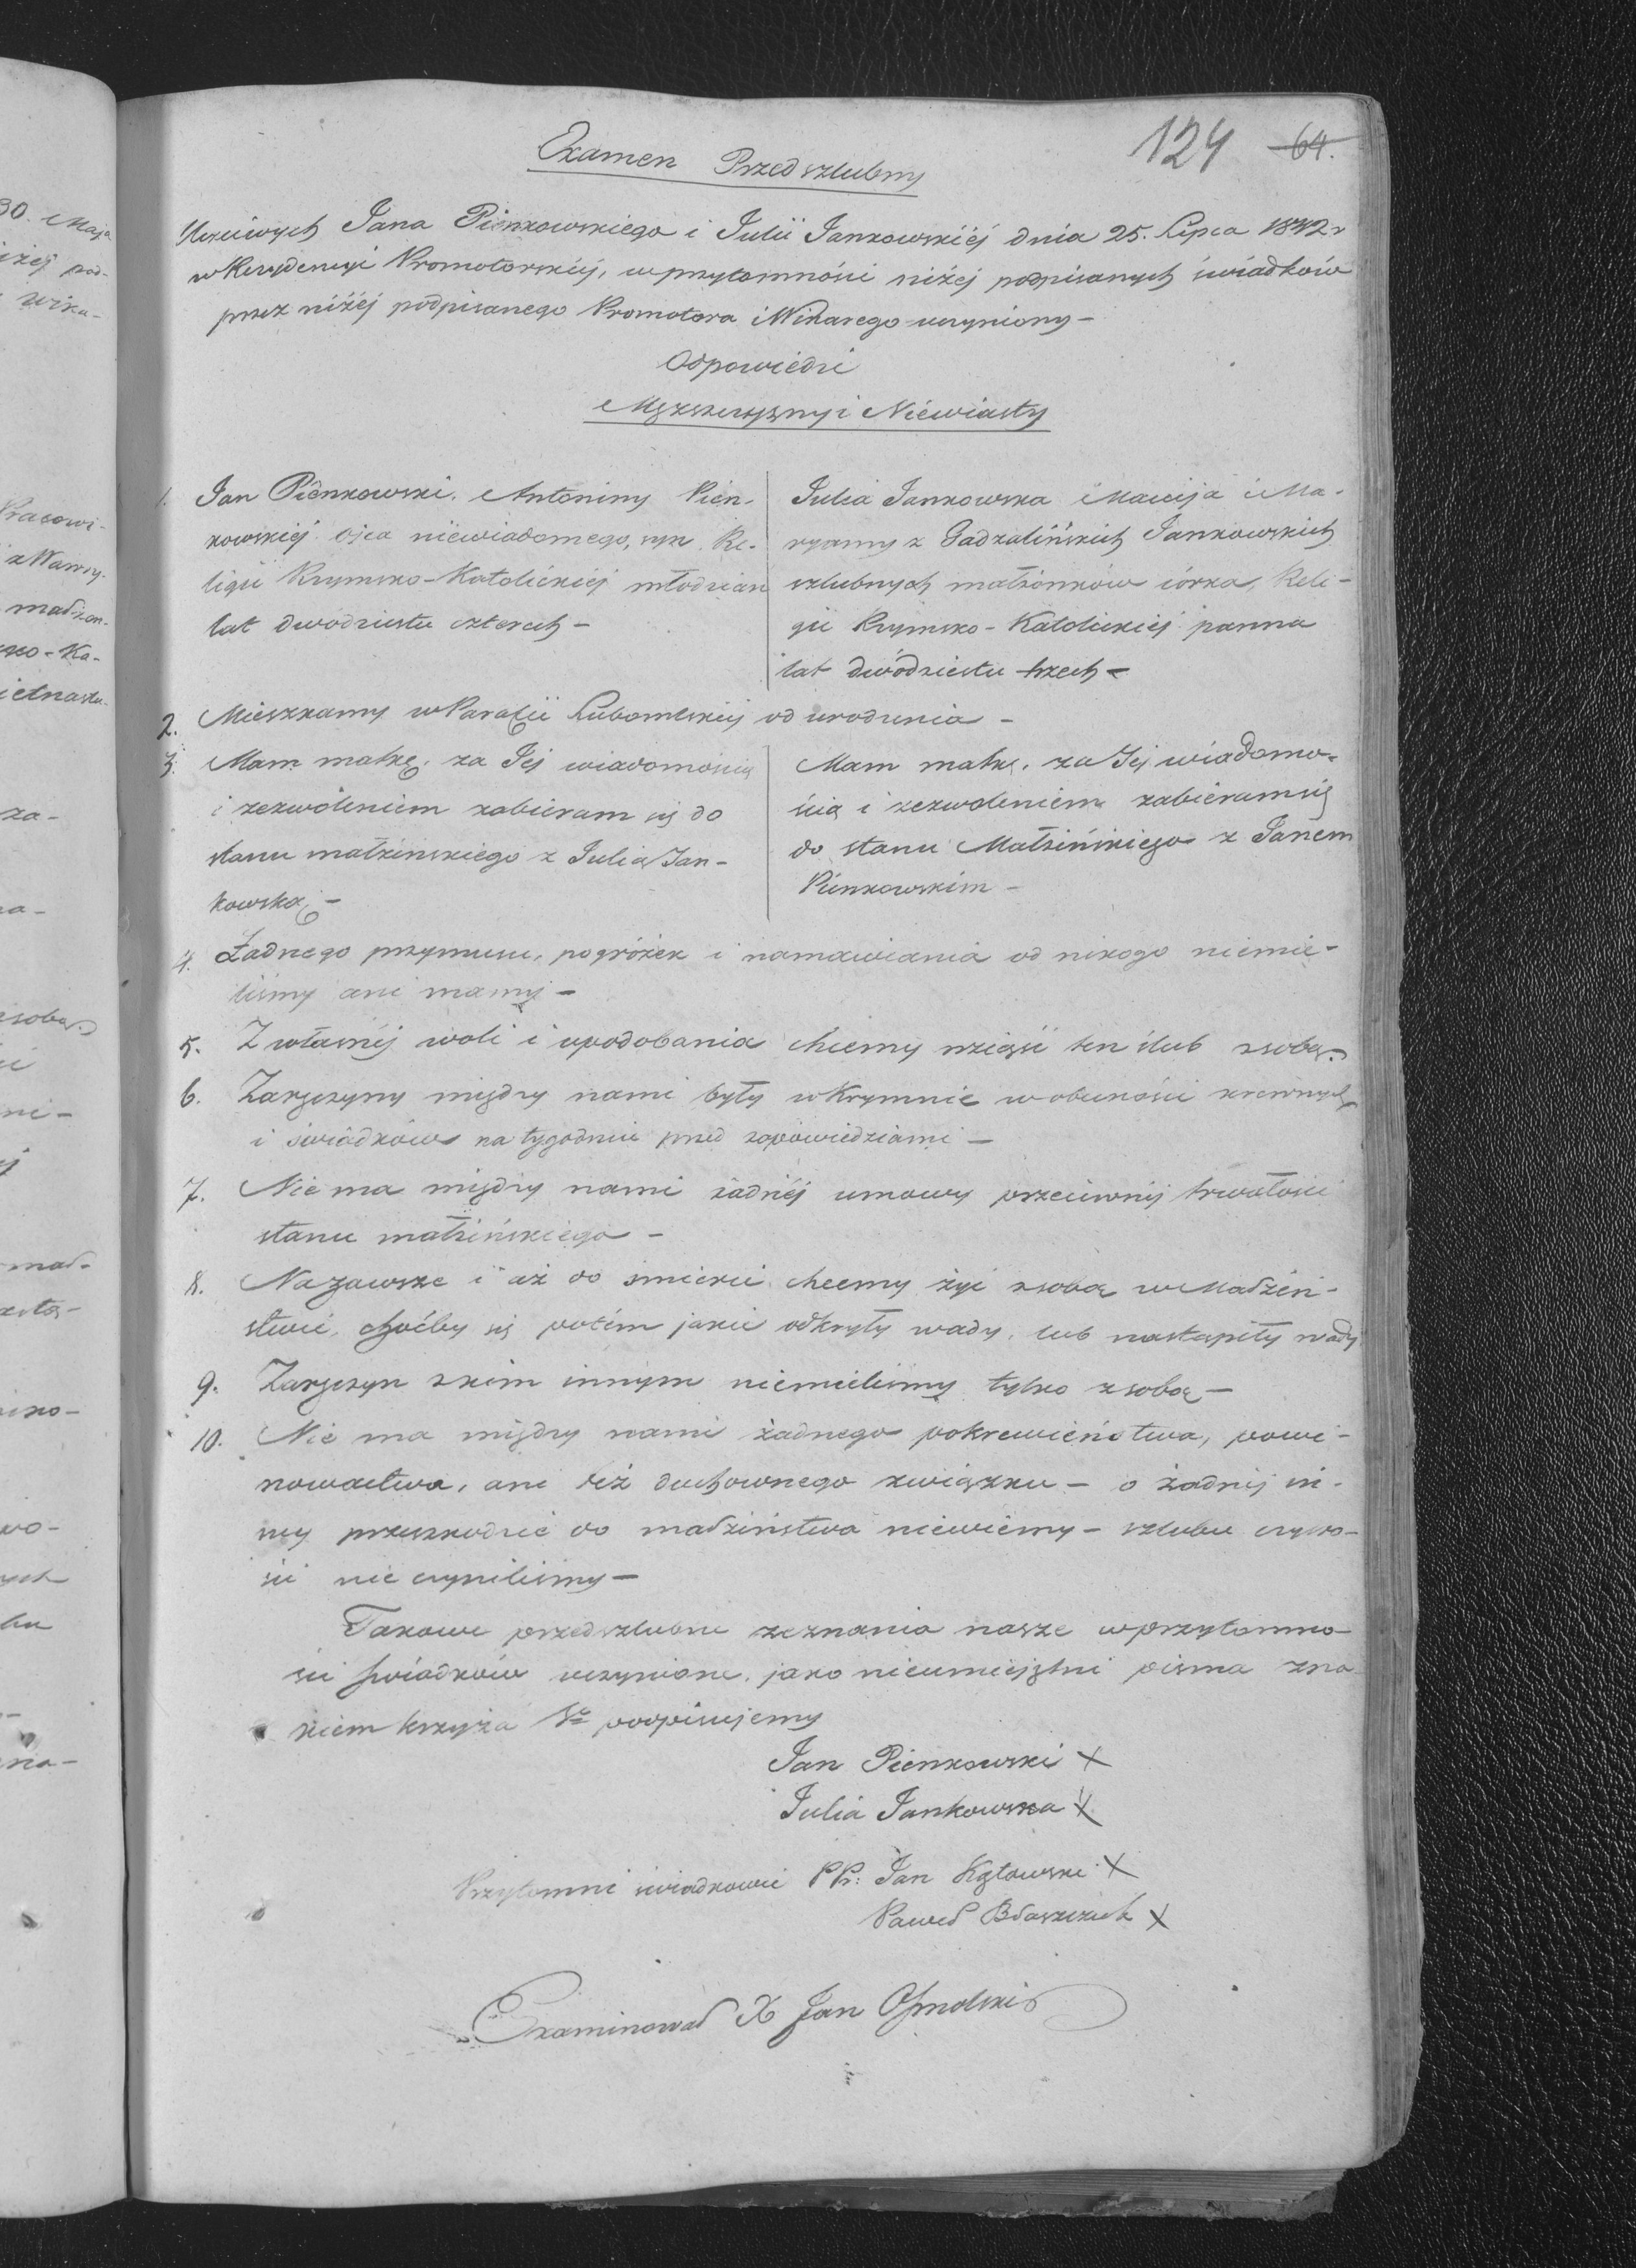 124 64.
Examen Przedszlubny
Uczciwych Jana Pienkowskiego i Julii Jankowskiéj dnia 25. Lipca 1842 r
w Rezydencyi Promotorskiéj, w przytomności niżéj podpisanych świadków
przez niżéj podpisanego Promotora i Wikarego uczyniony –
Odpowiedzi
Męszczyzny i Niewiasty
1. Jan Pienkowski. Antoniny Pień-
kowskiéj ojca niewiadomego, syn Re-
ligii Rzymsko-Katolickiéj młodzian
lat dwódziestu czterech –
Julia Jankowska Macieja i Ma-
ryanny z Jankowskich
szlubnych małżonków córka, Reli-
gii Rzymsko-Katolickiéj panna
lat dwódziestu trzech –
2. Mieszkamy w Parafii Lubomlskiéj od urodzenia –
3. Mam matkę, za Jéj wiadomością
i zezwoleniem zabieram się do
stanu małżinskiego z Julią Jan-
kowską –
Mam matkę, za Jéj wiadomo-
ścią i zezwoleniem zabieram się
do stanu Małżińskiego z Janem
Pienkowskim –
4. Żadnego przymusu, pogróżek i namawiania od nikogo niemie-
liśmy ani mamy –
5. Z własnéj woli i upodobania chcemy wziąść ten ślub z sobą.
6. Zaręczyny między nami były w Krymnie w obecności krewnych
i świadków na tygodniu przed zapowiedziami –
7. Nie ma między nami żadnéj umowy przeciwnéj trwałości
stanu małżińskiego –
8. Na zawsze i aż do śmierci chcemy żyć z sobą w Małżeń-
stwie, choćby się potém jakie odkryły wady, lub nastąpiły wady
9. Zaręczyn z kim innym niemieliśmy tylko z sobą –
10. Nie ma między nami żadnego pokrewieństwa, powi-
nowactwa, ani téż duchownego związku – o żadnéj in-
néj przeszkodzie do małżiństwa niewiemy – szlubu czysto-
ści nie czyniliśmy –
Takowe przedszlubne zeznania nasze w przytomno-
ści świadków uczynione, jako nieumiejętni pisma zna
kiem krzyża Sgo podpisujemy
Jan Pienkowski X
Julia Jankowska X
Przytomni świadkowie PP: Jan Kozłowski X
Paweł Błaszczuk X
Examinował X Jan Osmolski